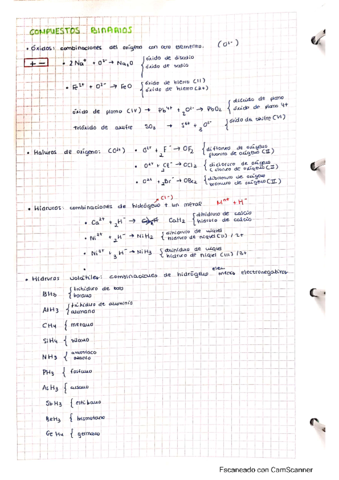 COMPUESTOS BINARIOS
• Óxidos: combinaciones del oxígeno con otro elemento. (O²⁻)
+ -
• 2Na⁺ + O²⁻ → Na₂O { óxido de disodio
óxido de sodio
• Fe²⁺ + O²⁻ → FeO { óxido de hierro (II)
óxido de hierro (2+)
óxido de plomo (IV) → Pb⁴⁺ + ₂O²⁻ → PbO₂ { dióxido de plomo
óxido de plomo 4+
trióxido de azufre SO₃ → S⁶⁺ + ₃O²⁻ { óxido de azufre (VI)
• Haluros de oxígeno: (O²⁺) • O²⁺ + ₂F⁻ → OF₂ { difluoruro de oxígeno
fluoruro de oxígeno (II)
• O²⁺ + ₂Cl⁻ → OCl₂ { dicloruro de oxígeno
cloruro de oxígeno (II)
• O²⁺ + ₂Br⁻ → OBr₂ { dibromuro de oxígeno
bromuro de oxígeno (II)
• Hidruros: combinaciones de hidrógeno + un metal
• Ca²⁺ + ₂H⁻ → CaH₂ { dihidruro de calcio
hidruro de calcio
• Ni²⁺ + ₂H⁻ → NiH₂ { dihidruro de níquel
hidruro de níquel (II) / 2+
• Ni³⁺ + ₃H⁻ → NiH₃ { trihidruro de níquel
hidruro de níquel (III) / 3+
• Hidruros volátiles: combinaciones de hidrógeno + elem. electronegativos
BH₃ { trihidruro de boro
borano
AlH₃ { trihidruro de aluminio
alumano
CH₄ { metano
SiH₄ { silano
NH₃ { amoníaco
azano
PH₃ { fosfano
AsH₃ { arsano
SbH₃ { estibano
BiH₃ { bismutano
GeH₄ { germano
Escaneado con CamScanner